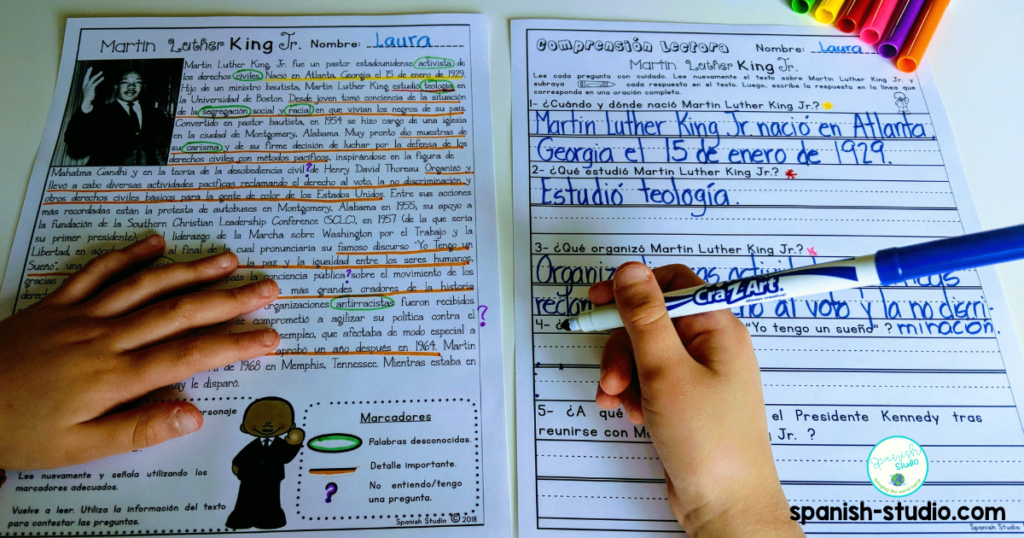 Martin Luther King Jr. Nombre: Laura
Martin Luther King, Jr. fue un pastor estadounidense, activista de
los derechos civiles. Nació en Atlanta, Georgia el 15 de enero de 1929.
Hijo de un ministro bautista, Martin Luther King estudió teología en
la Universidad de Boston. Desde joven tomó conciencia de la situación
de la segregación social y racial en que vivían los negros de su país.
Convertido en pastor bautista, en 1954 se hizo cargo de una iglesia
en la ciudad de Montgomery, Alabama. Muy pronto dio muestras de
su carisma y de su firme decisión de luchar por la defensa de los
derechos civiles con métodos pacíficos, inspirándose en la figura de
Mahatma Gandhi y en la teoría de la desobediencia civil ? de Henry David Thoreau. Organizó y
llevó a cabo diversas actividades pacíficas reclamando el derecho al voto, la no discriminación y
otros derechos civiles básicos para la gente de color de los Estados Unidos. Entre sus acciones
más recordadas están la protesta de autobuses en Montgomery, Alabama en 1955, su apoyo a
la fundación de la Southern Christian Leadership Conference (SCLC), en 1957 (de la que sería
su primer presidente) liderazgo de la Marcha sobre Washington por el Trabajo y la
Libertad, en al final de la cual pronunciaría su famoso discurso "Yo Tengo un
Sueño", la paz y la igualdad entre los seres humanos.
gracias la conciencia pública ? sobre el movimiento de los
más grandes oradores de la historia
organizaciones antirracistas fueron recibidos
se comprometió a agilizar su política contra el ?
desempleo, que afectaba de modo especial a
aprobó un año después en 1964. Martin
de 1968 en Memphis, Tennessee. Mientras estaba en
le disparó.
personaje
Lee nuevamente y señala utilizando los
marcadores adecuados.
Vuelve a leer. Utiliza la información del texto
para contestar las preguntas.
Marcadores
Palabras desconocidas.
Detalle importante.
? No entiendo/tengo
una pregunta.
Spanish Studio © 2018
Comprensión Lectora Nombre: Laura
Martin Luther King Jr.
Lee cada pregunta con cuidado. Lee nuevamente el texto sobre Martin Luther King Jr. y
subraya cada respuesta en el texto. Luego, escribe la respuesta en la línea que
corresponda en una oración completa.
1- ¿Cuándo y dónde nació Martin Luther King Jr.?
Martin Luther King Jr nació en Atlanta
Georgia el 15 de enero de 1929.
2- ¿Qué estudió Martin Luther King Jr.?
Estudió teología.
3- ¿Qué organizó Martin Luther King Jr.?
al voto y la no derri-
4- "Yo tengo un sueño" ? minacon.
5- ¿A qué el Presidente Kennedy tras
reunirse con Jr. ?
Cra-Z-Art
Spanish Studio
spanish-studio.com
Spanish Studio